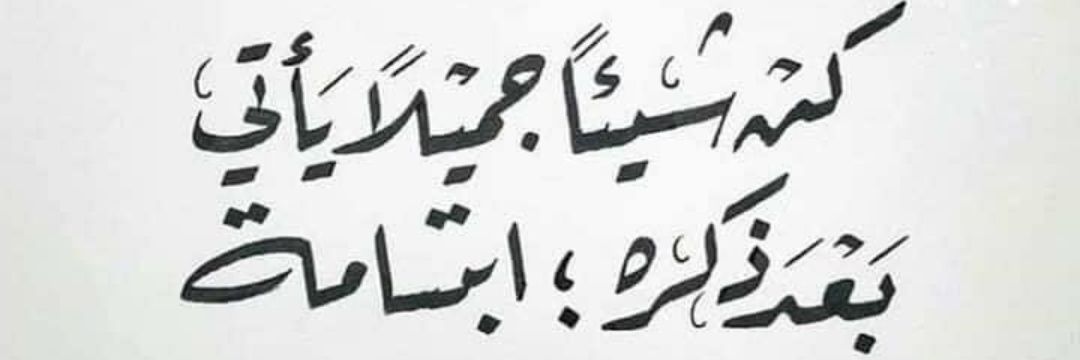 كن شيئاً جميلاً يأتي
بَعْدَ ذكره ؛ ابتسامة